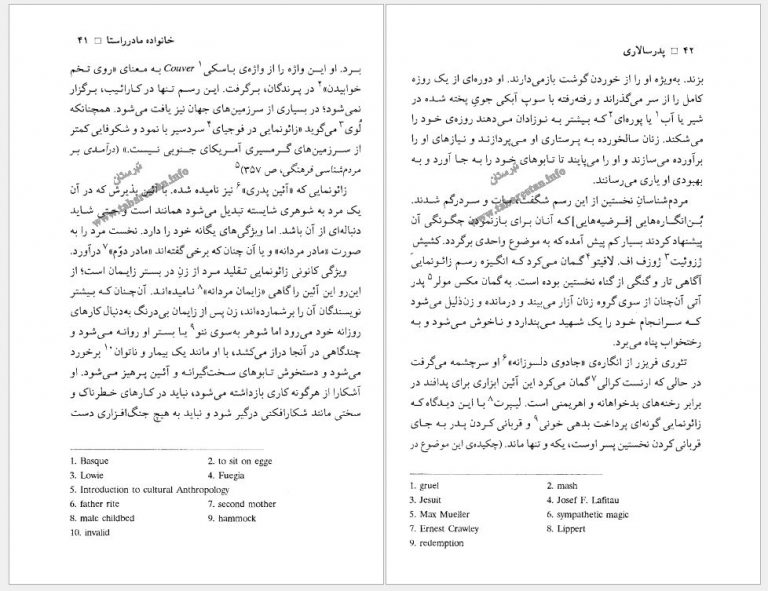 خانواده مادرراستا □ ۴۱
برد. او این واژه را از واژه‌ی باسکی۱ Couver به معنای «روی تخم
خوابیدن»۲ در پرندگان، برگرفت. این رسم تنها در کارائیب، برگزار
نمی‌شود؛ در بسیاری از سرزمین‌های جهان نیز یافت می‌شود. همچنانکه
لُوی۳ می‌گوید «زائونمایی در فوجیای۴ سردسیر با نمود و شکوفایی کمتر
از سرزمین‌های گرمسیری آمریکای جنوبی نیست.» (درآمدی بر
مردم‌شناسی فرهنگی، ص ۳۵۷)۵
زائونمایی که «آئین پدری»۶ نیز نامیده شده. با آئین پذیرش که در آن
یک مرد به شوهری شایسته تبدیل می‌شود همانند است و حتی شاید
دنباله‌ای از آن باشد. اما ویژگی‌های یگانه خود را دارد. نخست مرد را به
صورت «مادر مردانه» و یا آن چنان که برخی گفته‌اند «مادر دوّم»۷ درآورد.
ویژگی کانونی زائونمایی تقلید مرد از زن در بستر زایمان است؛ از
این‌رو این آئین را گاهی «زایمان مردانه»۸ نامیده‌اند. آن‌چنان که بیشتر
نویسندگان آن را برشمارده‌اند، زن پس از زایمان بی‌درنگ به‌دنبال کارهای
روزانه خود می‌رود اما شوهر به‌سوی ننو۹ یا بستر او روانه می‌شود و
چندگاهی در آنجا دراز می‌کشد، با او مانند یک بیمار و ناتوان۱۰ برخورد
می‌شود و دستخوش تابوهای سخت‌گیرانه و آئین پرهیز می‌شود. او
آشکارا از هرگونه کاری بازداشته می‌شود، نباید در کارهای خطرناک و
سختی مانند شکارافکنی درگیر شود و نباید به هیچ جنگ‌افزاری دست
1. Basque 2. to sit on egge
3. Lowie 4. Fuegia
5. Introduction to cultural Anthropology
6. father rite 7. second mother
8. male childbed 9. hammock
10. invalid
تبرستان
www.tabarestan.info
۴۲ □ پدرسالاری
بزند. به‌ویژه او را از خوردن گوشت بازمی‌دارند. او دوره‌ای از یک روزه
کامل را از سر می‌گذراند و رفته‌رفته با سوپ آبکی جوی پخته شده در
شیر یا آب۱ یا پوره‌ای۲ که بیشتر به نوزادان می‌دهند روزه‌ی خود را
می‌شکند. زنان سالخورده به پرستاری او می‌پردازند و نیازهای او را
برآورده می‌سازند و او را می‌پایند تا تابوهای خود را به جا آورد و به
بهبودی او یاری می‌رسانند.
مردم‌شناسان نخستین از این رسم شگفت، مات و سردرگم شدند.
بُن‌انگاره‌هایی [فرضیه‌هایی] که آنان برای بازنمودن چگونگی آن
پیشنهاد کردند بسیار کم پیش آمده که به موضوع واحدی برگردد. کشیش
ژزوئیت۳ ژوزف اف. لافیتو۴ گمان می‌کرد که انگیزه رسم زائونمایی
آگاهی تار و گنگی از گناه نخستین بوده است. به گمان مکس مولر۵ پدر
آتی آن‌چنان از سوی گروه زنان آزار می‌بیند و درمانده و زن‌ذلیل می‌شود
که سرانجام خود را یک شهید می‌پندارد و ناخوش می‌شود و به
رختخواب پناه می‌برد.
تئوری فریزر از انگاره‌ی «جادوی دلسوزانه»۶ او سرچشمه می‌گرفت
در حالی که ارنست کرالی۷ گمان می‌کرد این آئین ابزاری برای پدافند در
برابر رخنه‌های بدخواهانه و اهریمنی است. لیپرت۸ با این دیدگاه که
زائونمایی گونه‌ای پرداخت بدهی خونی۹ و قربانی کردن پدر به جای
قربانی کردن نخستین پسر اوست، یکه و تنها ماند. (چکیده‌ی این موضوع در
1. gruel 2. mash
3. Jesuit 4. Josef F. Lafitau
5. Max Mueller 6. sympathetic magic
7. Ernest Crawley 8. Lippert
9. redemption
تبرستان
www.tabarestan.info